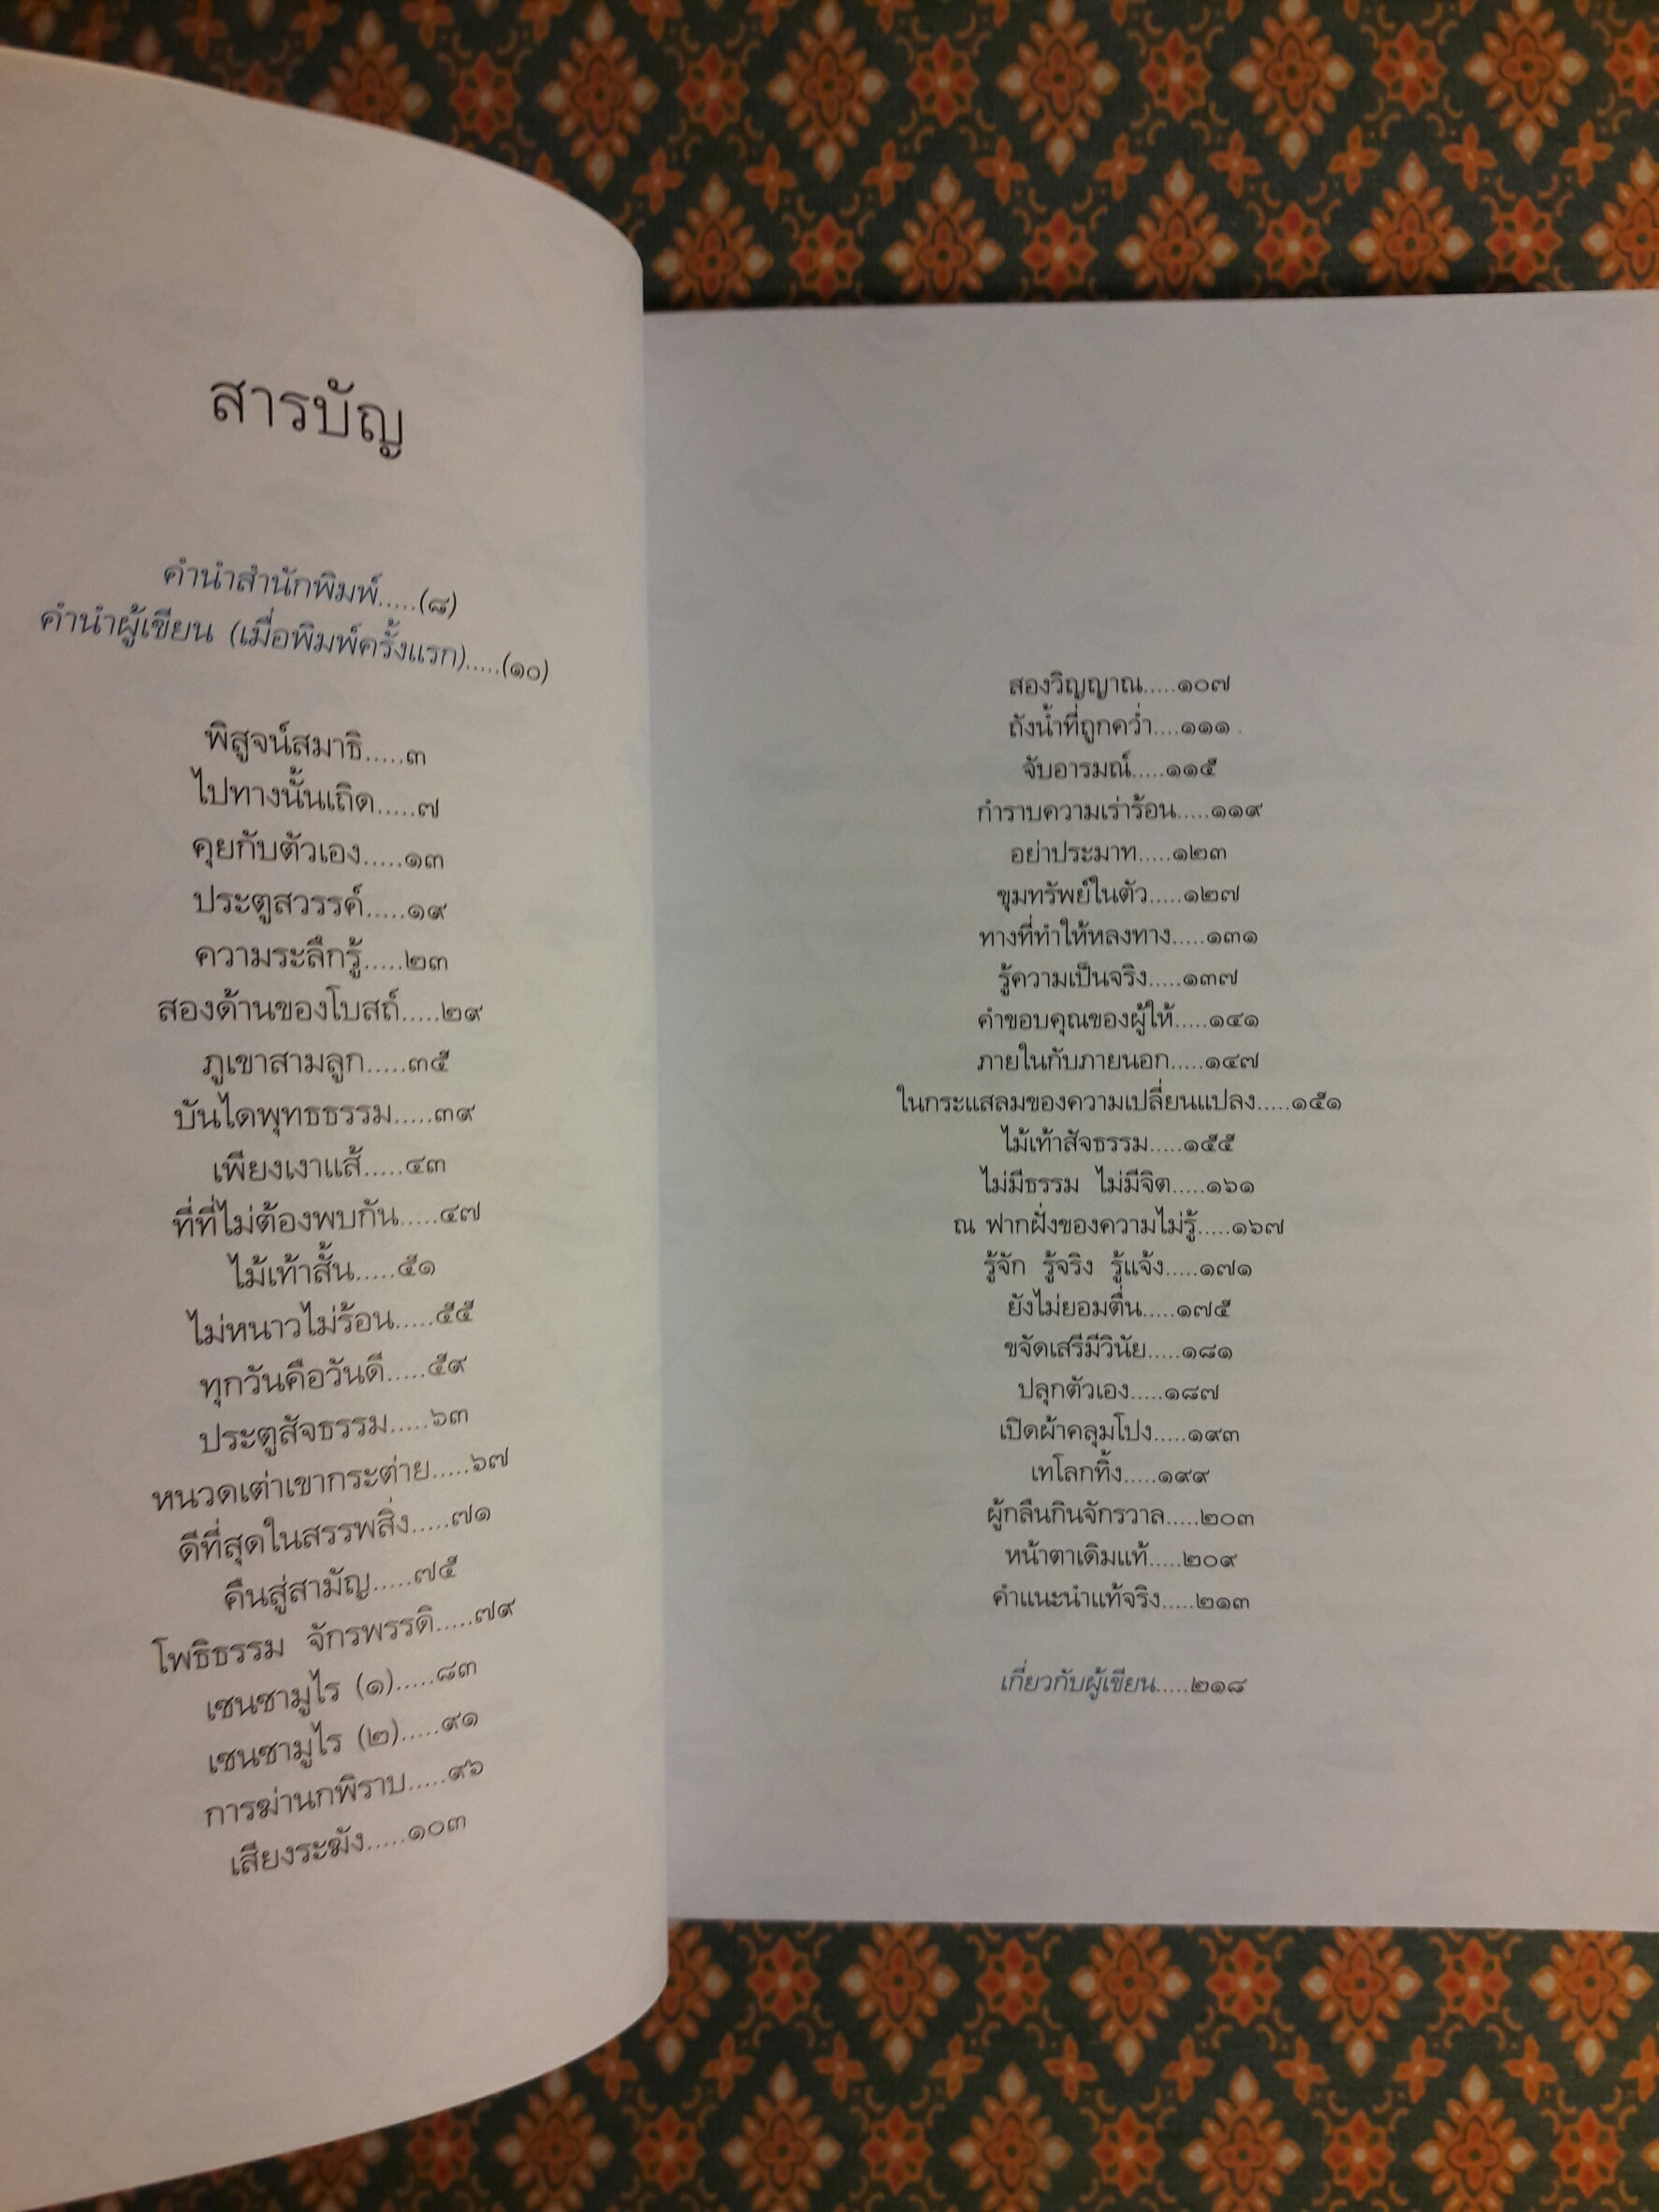 สารบัญ
คำนำสำนักพิมพ์.....(๘)
คำนำผู้เขียน (เมื่อพิมพ์ครั้งแรก).....(๑๐)
พิสูจน์สมาธิ.....๓
ไปทางนั้นเถิด.....๗
คุยกับตัวเอง.....๑๓
ประตูสวรรค์.....๑๙
ความระลึกรู้.....๒๓
สองด้านของโบสถ์.....๒๙
ภูเขาสามลูก.....๓๕
บันไดพุทธธรรม.....๓๙
เพียงเงาแส้.....๔๓
ที่ที่ไม่ต้องพบกัน.....๔๗
ไม้เท้าสั้น.....๕๑
ไม่หนาวไม่ร้อน.....๕๕
ทุกวันคือวันดี.....๕๙
ประตูสัจธรรม.....๖๓
หนวดเต่าเขากระต่าย.....๖๗
ดีที่สุดในสรรพสิ่ง.....๗๑
คืนสู่สามัญ.....๗๕
โพธิธรรม จักรพรรดิ.....๗๙
เซนซามูไร (๑).....๘๓
เซนซามูไร (๒).....๙๑
การฆ่านกพิราบ.....๙๖
เสียงระฆัง.....๑๐๓
สองวิญญาณ.....๑๐๗
ถังน้ำที่ถูกคว่ำ....๑๑๑
จับอารมณ์.....๑๑๕
กำราบความเร่าร้อน.....๑๑๙
อย่าประมาท.....๑๒๓
ขุมทรัพย์ในตัว.....๑๒๗
ทางที่ทำให้หลงทาง.....๑๓๑
รู้ความเป็นจริง.....๑๓๗
คำขอบคุณของผู้ให้.....๑๔๑
ภายในกับภายนอก.....๑๔๗
ในกระแสลมของความเปลี่ยนแปลง.....๑๕๑
ไม้เท้าสัจธรรม.....๑๕๕
ไม่มีธรรม ไม่มีจิต.....๑๖๑
ณ ฟากฝั่งของความไม่รู้.....๑๖๗
รู้จัก รู้จริง รู้แจ้ง.....๑๗๑
ยังไม่ยอมตื่น.....๑๗๕
ขจัดเสรีมีวินัย.....๑๘๑
ปลุกตัวเอง.....๑๘๗
เปิดผ้าคลุมโปง.....๑๙๓
เทโลกทิ้ง.....๑๙๙
ผู้กลืนกินจักรวาล.....๒๐๓
หน้าตาเดิมแท้.....๒๐๙
คำแนะนำแท้จริง.....๒๑๓
เกี่ยวกับผู้เขียน.....๒๑๘